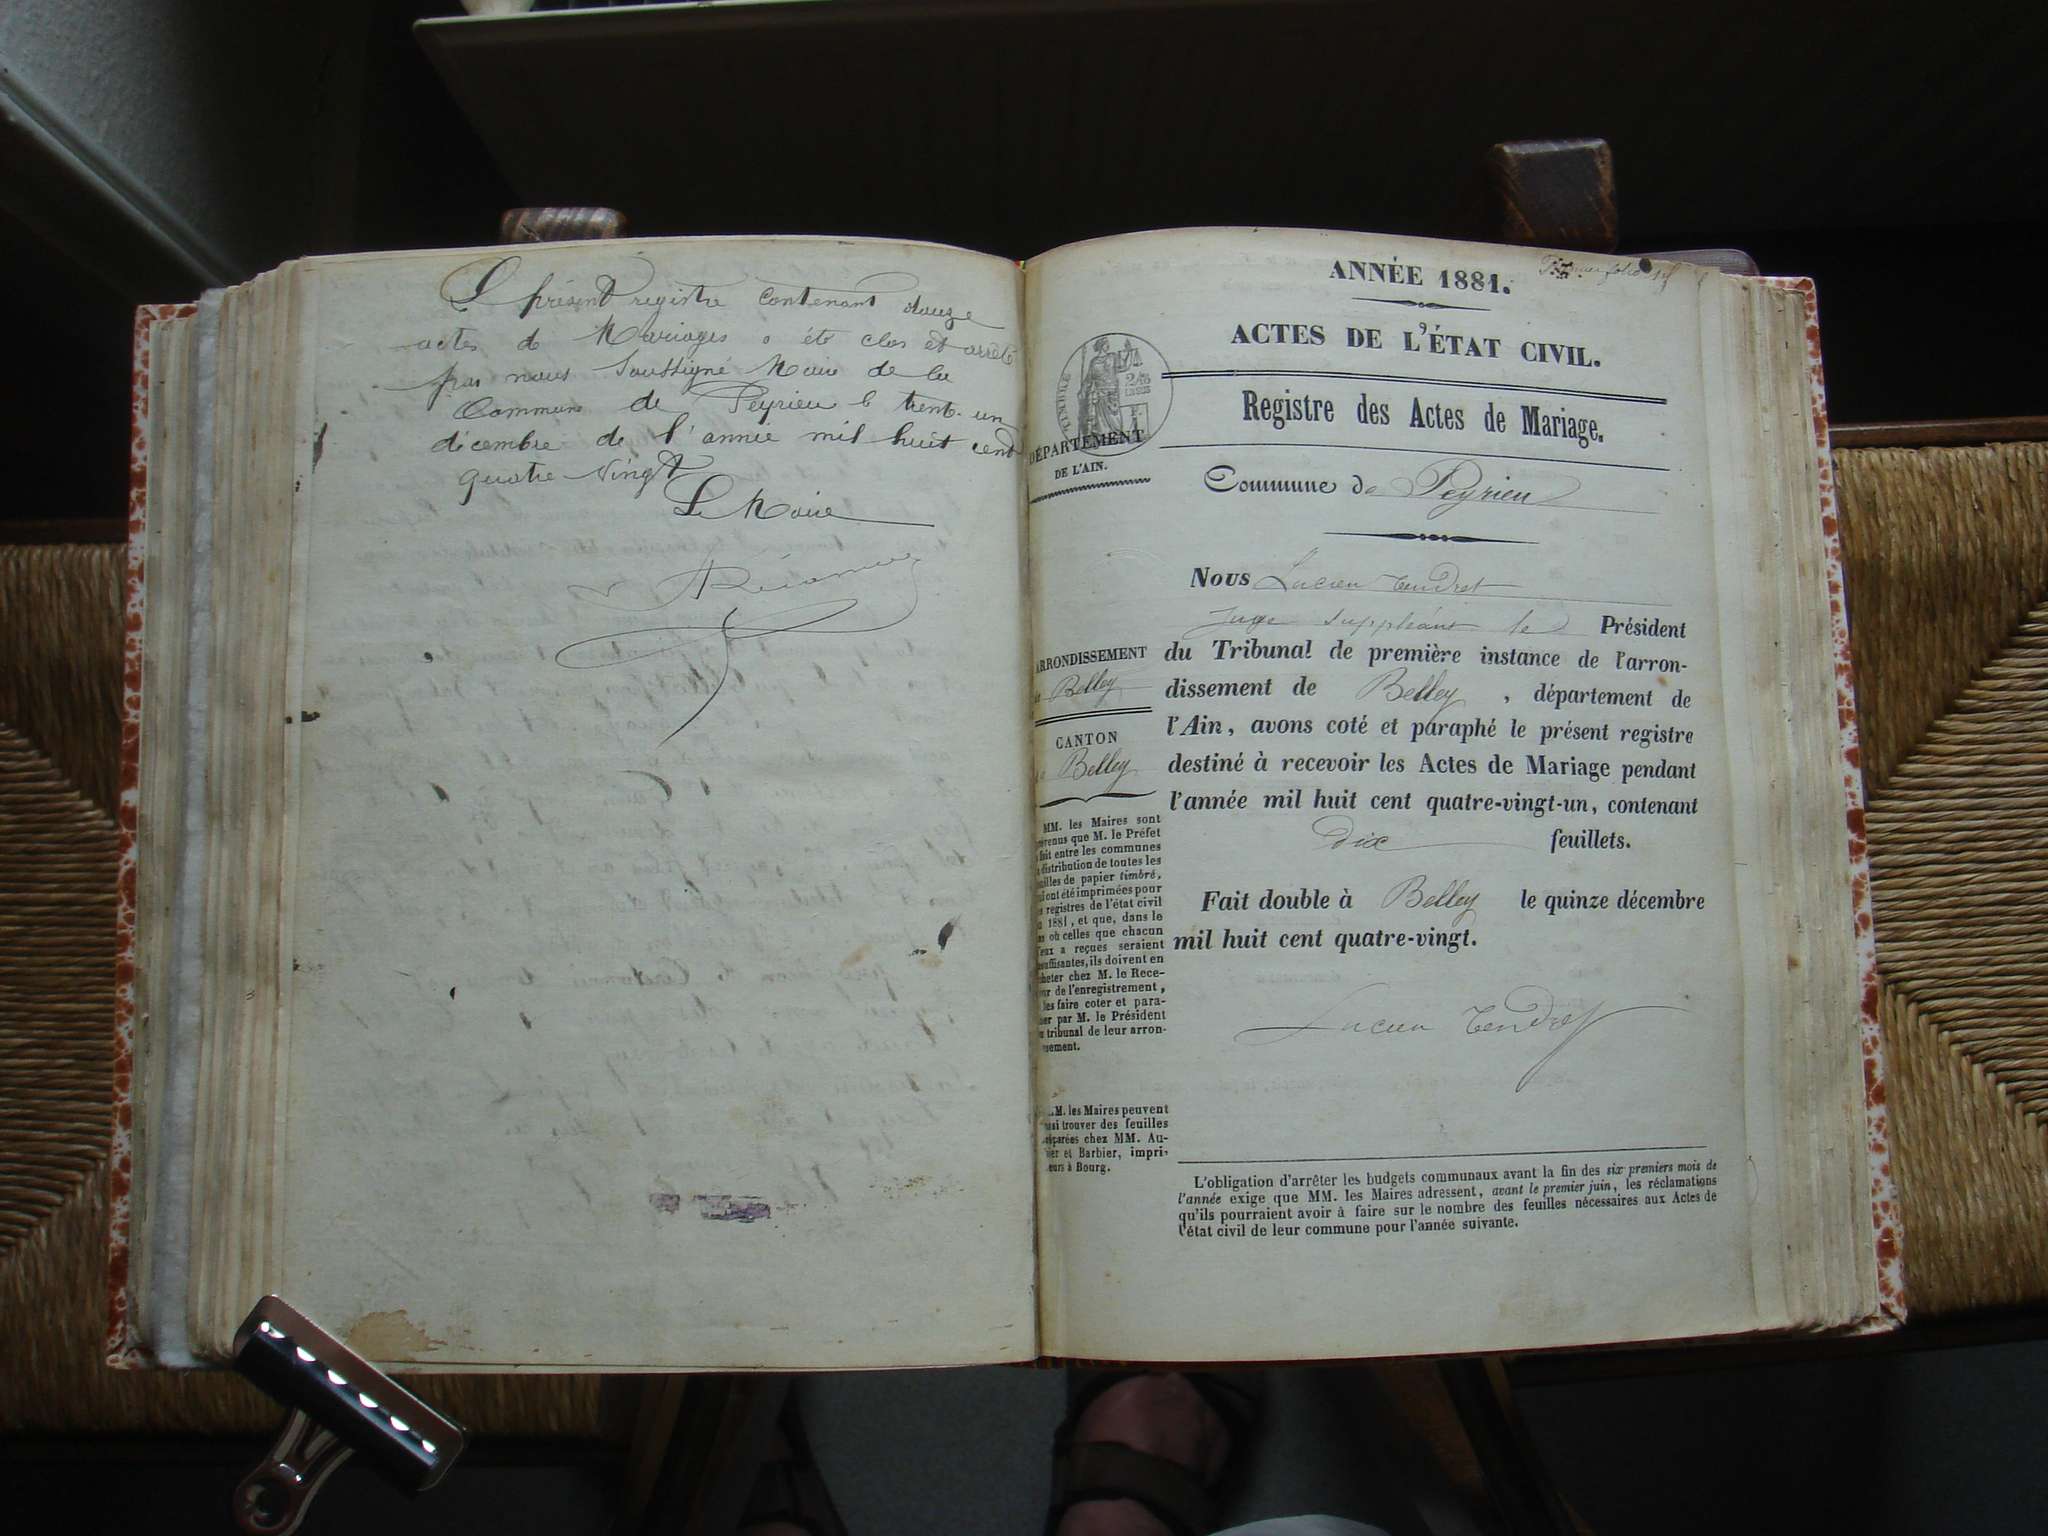 Le présent registre contenant douze
actes de Mariages a été clos et arrêté
par nous Soussigné Maire de la
Commune de Peyrieu le trent-un
décembre de l'année mil huit cent
quatre vingt
Le Maire
ANNÉE 1881.
Premier folio
ACTES DE L'ÉTAT CIVIL.
Registre des Actes de Mariage.
TIMBRE
DÉPARTEMENT
DE L'AIN.
Commune de Peyrieu
Nous Lucien Tendret
juge suppléant le Président
du Tribunal de première instance de l'arron-
dissement de Belley, département de
l'Ain, avons coté et paraphé le présent registre
destiné à recevoir les Actes de Mariage pendant
l'année mil huit cent quatre-vingt-un, contenant
dix feuillets.
Fait double à Belley le quinze décembre
mil huit cent quatre-vingt.
Lucien Tendret
ARRONDISSEMENT
Belley
CANTON
Belley
MM. les Maires sont
révenus que M. le Préfet
fait entre les communes
distribution de toutes les
uilles de papier timbré,
ui ont été imprimées pour
s registres de l'état civil
1881, et que, dans le
as où celles que chacun
'eux a reçues seraient
suffisantes, ils doivent en
cheter chez M. le Rece-
ur de l'enregistrement,
les faire coter et para-
er par M. le Président
u tribunal de leur arron-
ssement.
M. les Maires peuvent
ssi trouver des feuilles
éparées chez MM. Au-
ier et Barbier, impri-
eurs à Bourg.
L'obligation d'arrêter les budgets communaux avant la fin des six premiers mois de
l'année exige que MM. les Maires adressent, avant le premier juin, les réclamations
qu'ils pourraient avoir à faire sur le nombre des feuilles nécessaires aux Actes de
l'état civil de leur commune pour l'année suivante.